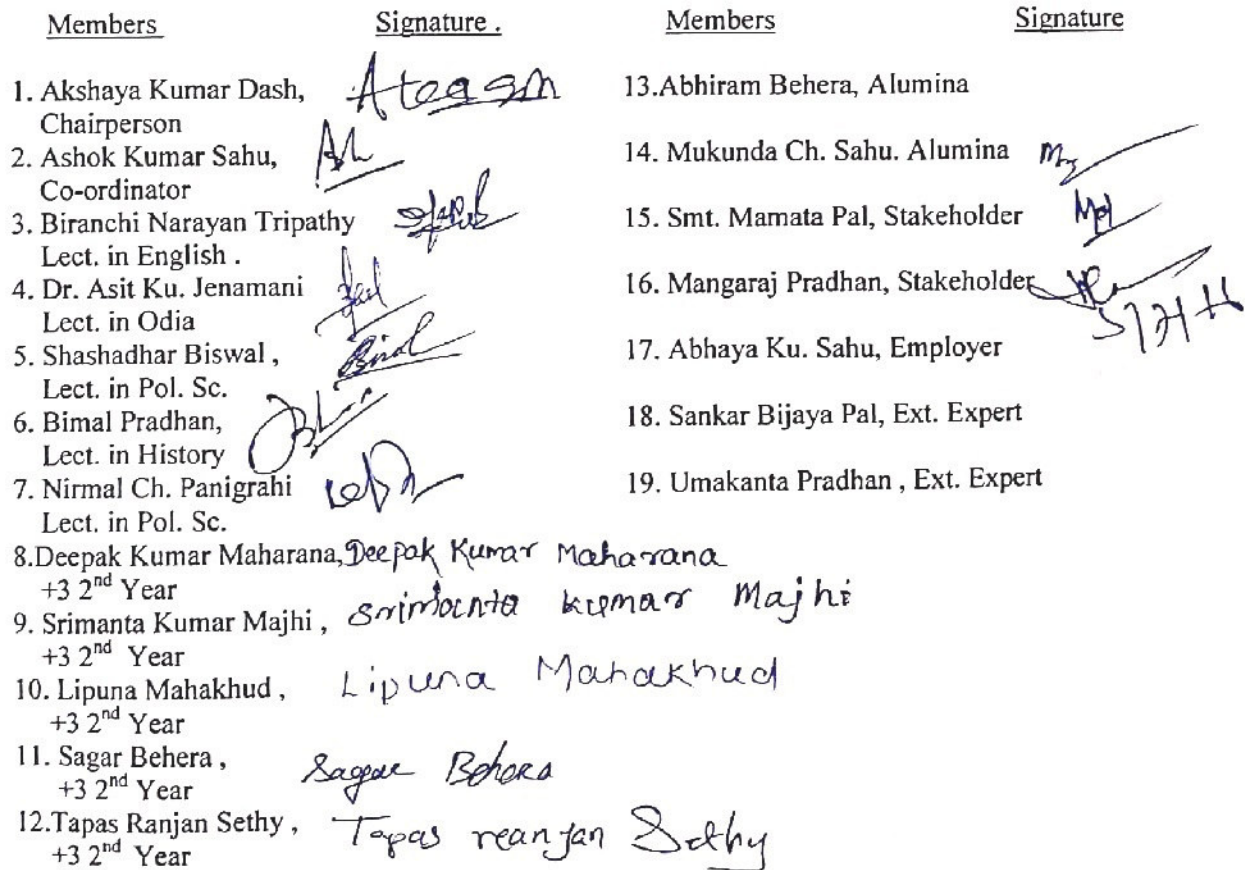 Members Signature . Members Signature
1. Akshaya Kumar Dash,
Chairperson
2. Ashok Kumar Sahu,
Co-ordinator
3. Biranchi Narayan Tripathy
Lect. in English .
4. Dr. Asit Ku. Jenamani
Lect. in Odia
5. Shashadhar Biswal ,
Lect. in Pol. Sc.
6. Bimal Pradhan,
Lect. in History
7. Nirmal Ch. Panigrahi
Lect. in Pol. Sc.
8.Deepak Kumar Maharana, Deepak Kumar Maharana
+3 2nd Year
9. Srimanta Kumar Majhi , Srimanta kumar Majhi
+3 2nd Year
10. Lipuna Mahakhud , Lipuna Mahakhud
+3 2nd Year
11. Sagar Behera , Sagar Behera
+3 2nd Year
12.Tapas Ranjan Sethy , Tapas reanjan Sethy
+3 2nd Year
13.Abhiram Behera, Alumina
14. Mukunda Ch. Sahu. Alumina
15. Smt. Mamata Pal, Stakeholder
16. Mangaraj Pradhan, Stakeholder
17. Abhaya Ku. Sahu, Employer
18. Sankar Bijaya Pal, Ext. Expert
19. Umakanta Pradhan , Ext. Expert